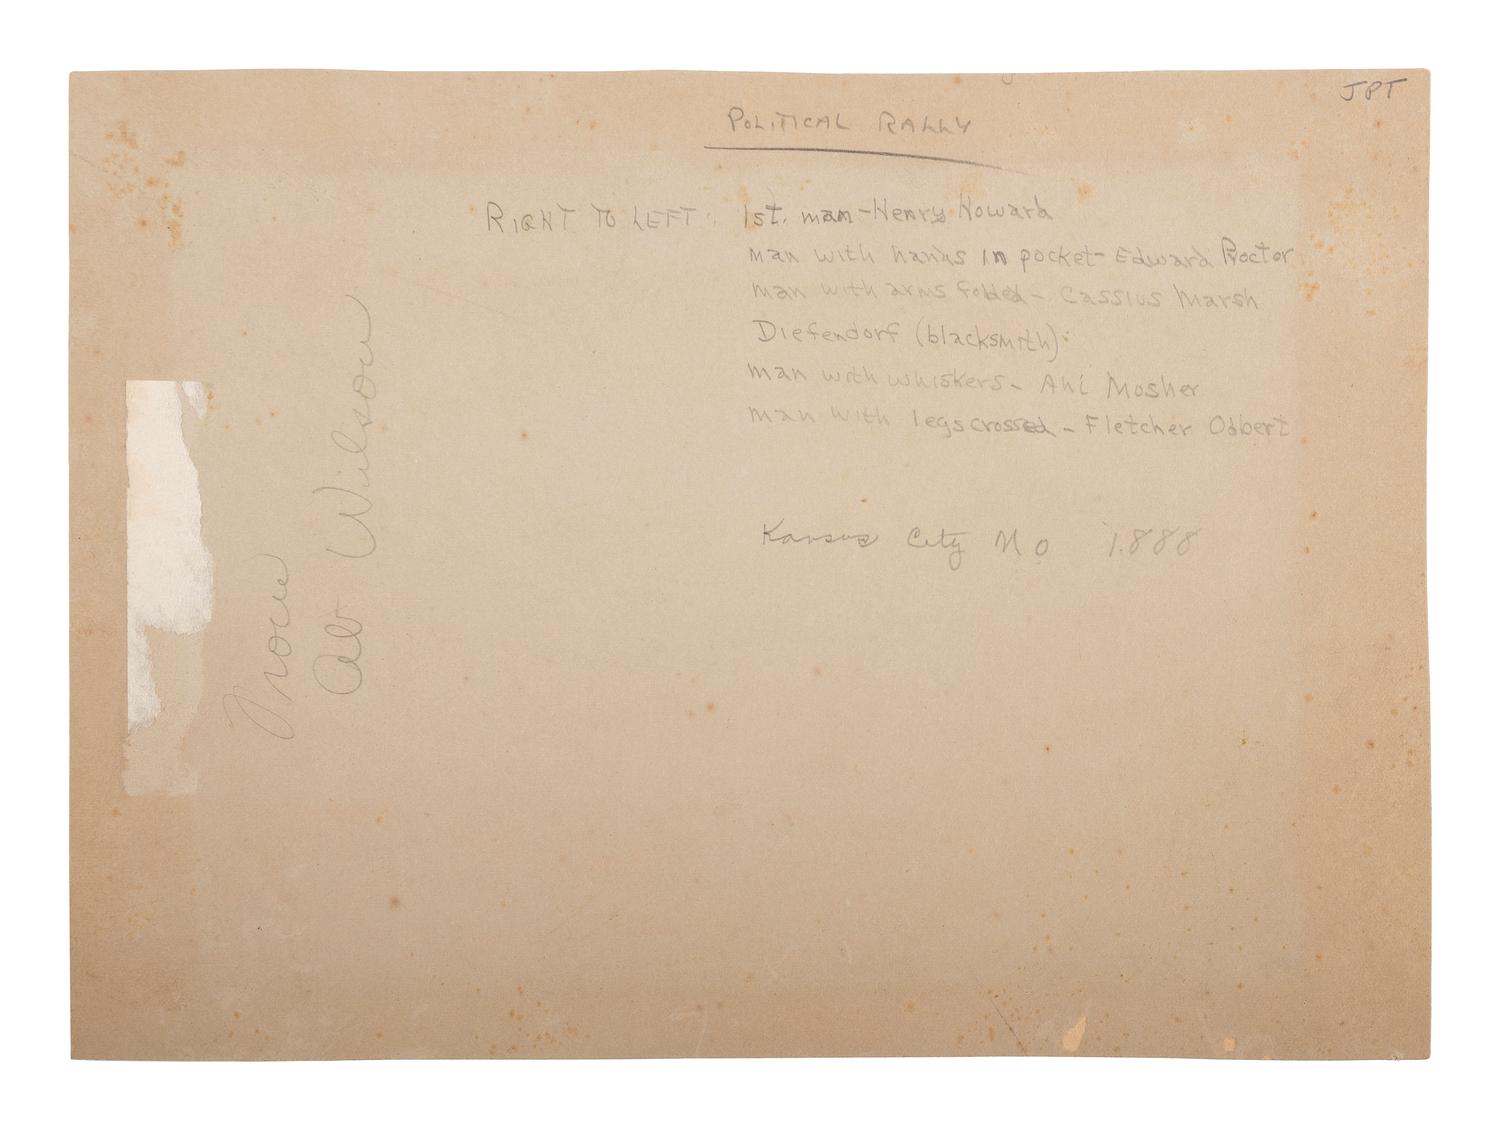 JPT
POLITICAL RALLY
RIGHT TO LEFT: 1st. man - Henry Howard
man with hands in pocket - Edward Proctor
man with arms folded - Cassius Marsh
Diefendorf (blacksmith)
man with whiskers - Ahi Mosher
man with legs crossed - Fletcher Odbert
Kansas City Mo 1888
From
Ab Wilson